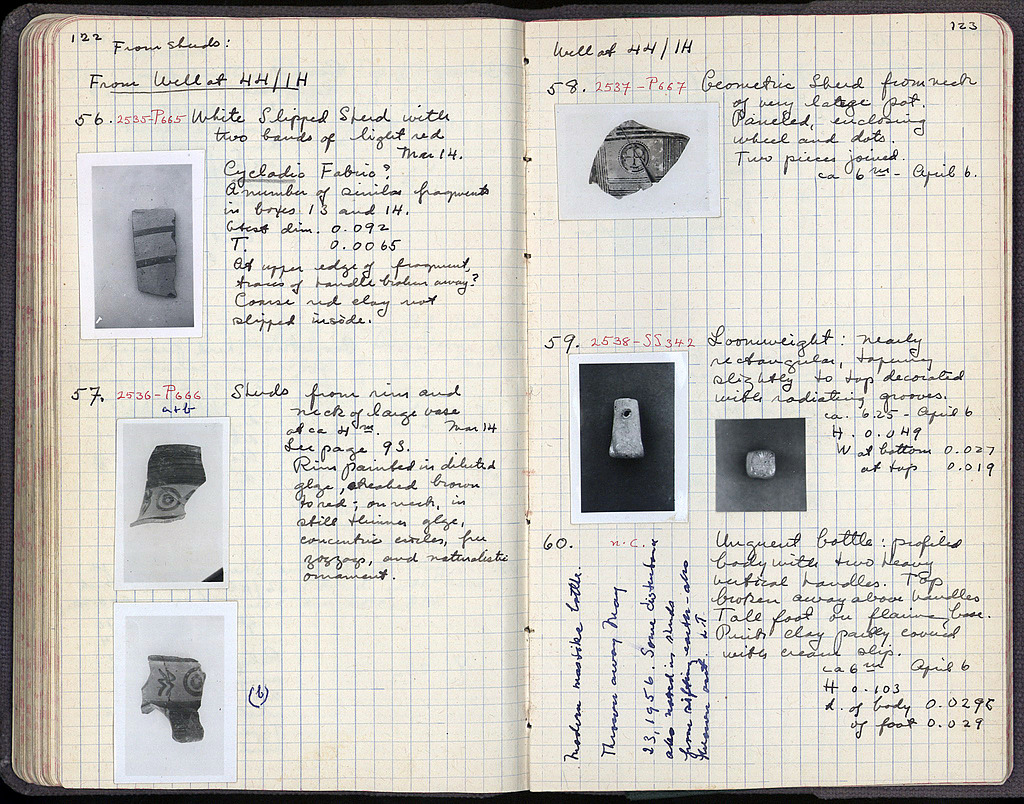 122
From sherds:
From Well at 44/ΙΗ
56. 2535-P665 White Slipped Sherd with
two bands of light red
Mar 14.
Cycladic Fabric?
A number of similar fragments
in boxes 13 and 14.
Gtest dim. 0.092
T. 0.0065
At upper edge of fragment,
traces of handle broken away?
Coarse red clay not
slipped inside.
57. 2536-P666
a+b
Sherds from rim and
neck of large vase
at ca 4 m. Mar 14
See page 93.
Rim painted in diluted
glaze, streaked brown
to red; on neck, in
still thinner glaze,
concentric circles, free
zigzags, and naturalistic
ornament.
(b)
123
Well at 44/ΙΗ
58. 2537-P667 Geometric Sherd from neck
of very large pot.
Paneled, enclosing
wheel and dots.
Two pieces joined.
ca 6 m - April 6.
59. 2538-SS342 Loomweight: nearly
rectangular, tapering
slightly to top decorated
with radiating grooves.
ca. 6.25 - April 6
H. 0.049
W at bottom 0.027
at top 0.019
60. n.c. Unguent bottle: profiled
body with two heavy
vertical handles. Top
broken away above handles
Tall foot on flaring base.
Pinkish clay partly covered
with cream slip.
ca 6 m April 6
H 0.103
d. of body 0.0295
of foot 0.029
Modern mastike bottle.
Thrown away May
23, 1956. Some disturbance
also noted in sherds
from sifting earth - also
thrown out. L.T.